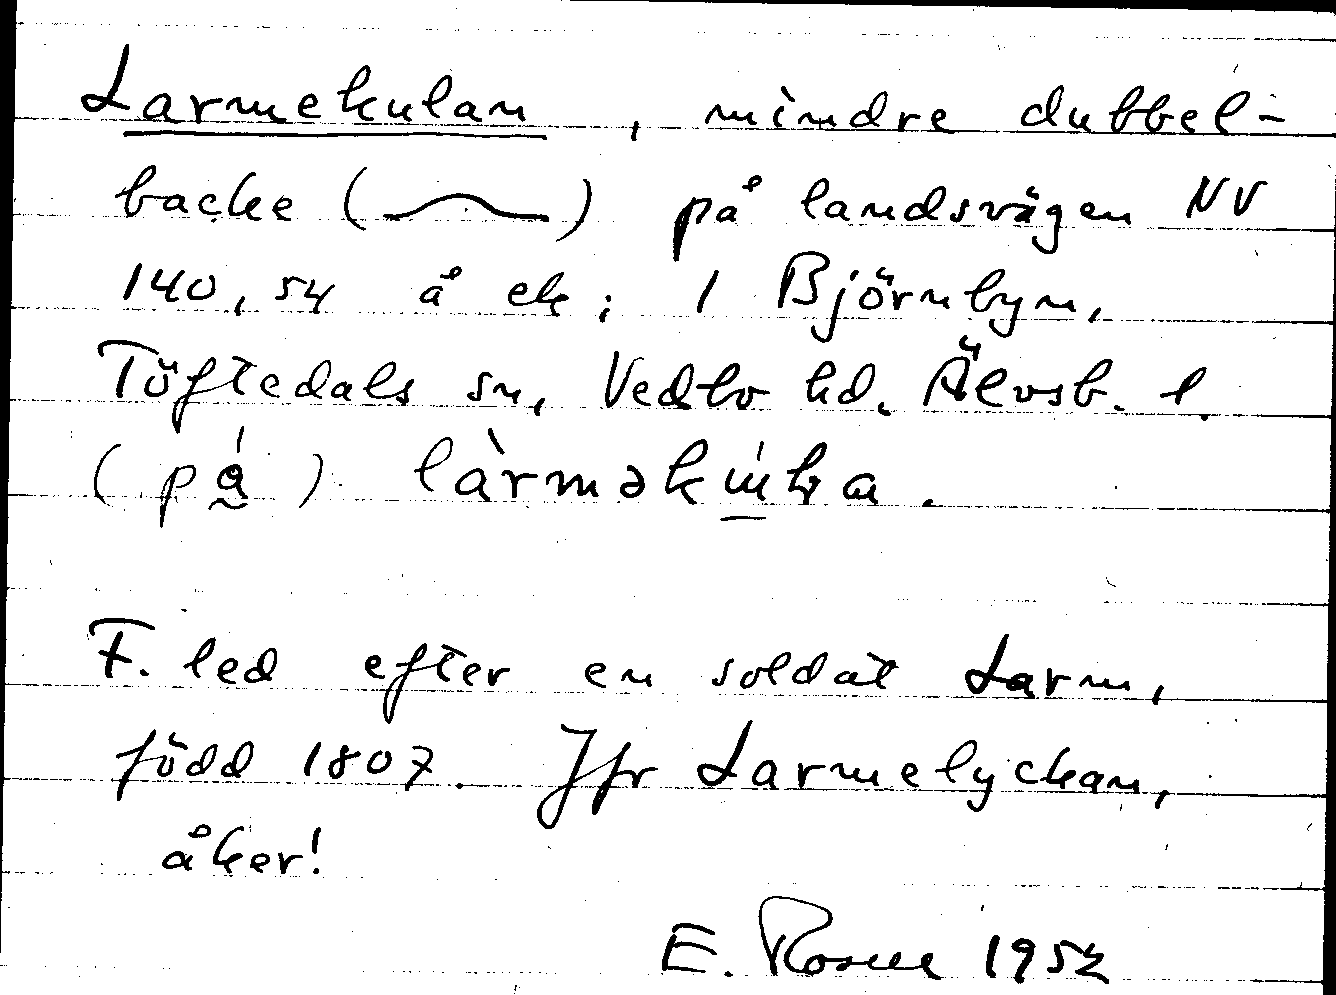 Larmekulan, mindre dubbel-
backe ( ) på landsvägen NV
140, 54 å ek; 1 Björnbyn,
Töftedals sn, Vedbo hd. Älvsb. l.
(på)
F. led efter en soldat Larm,
född 1807. Jfr Larmelyckan,
åker!
E. 1952